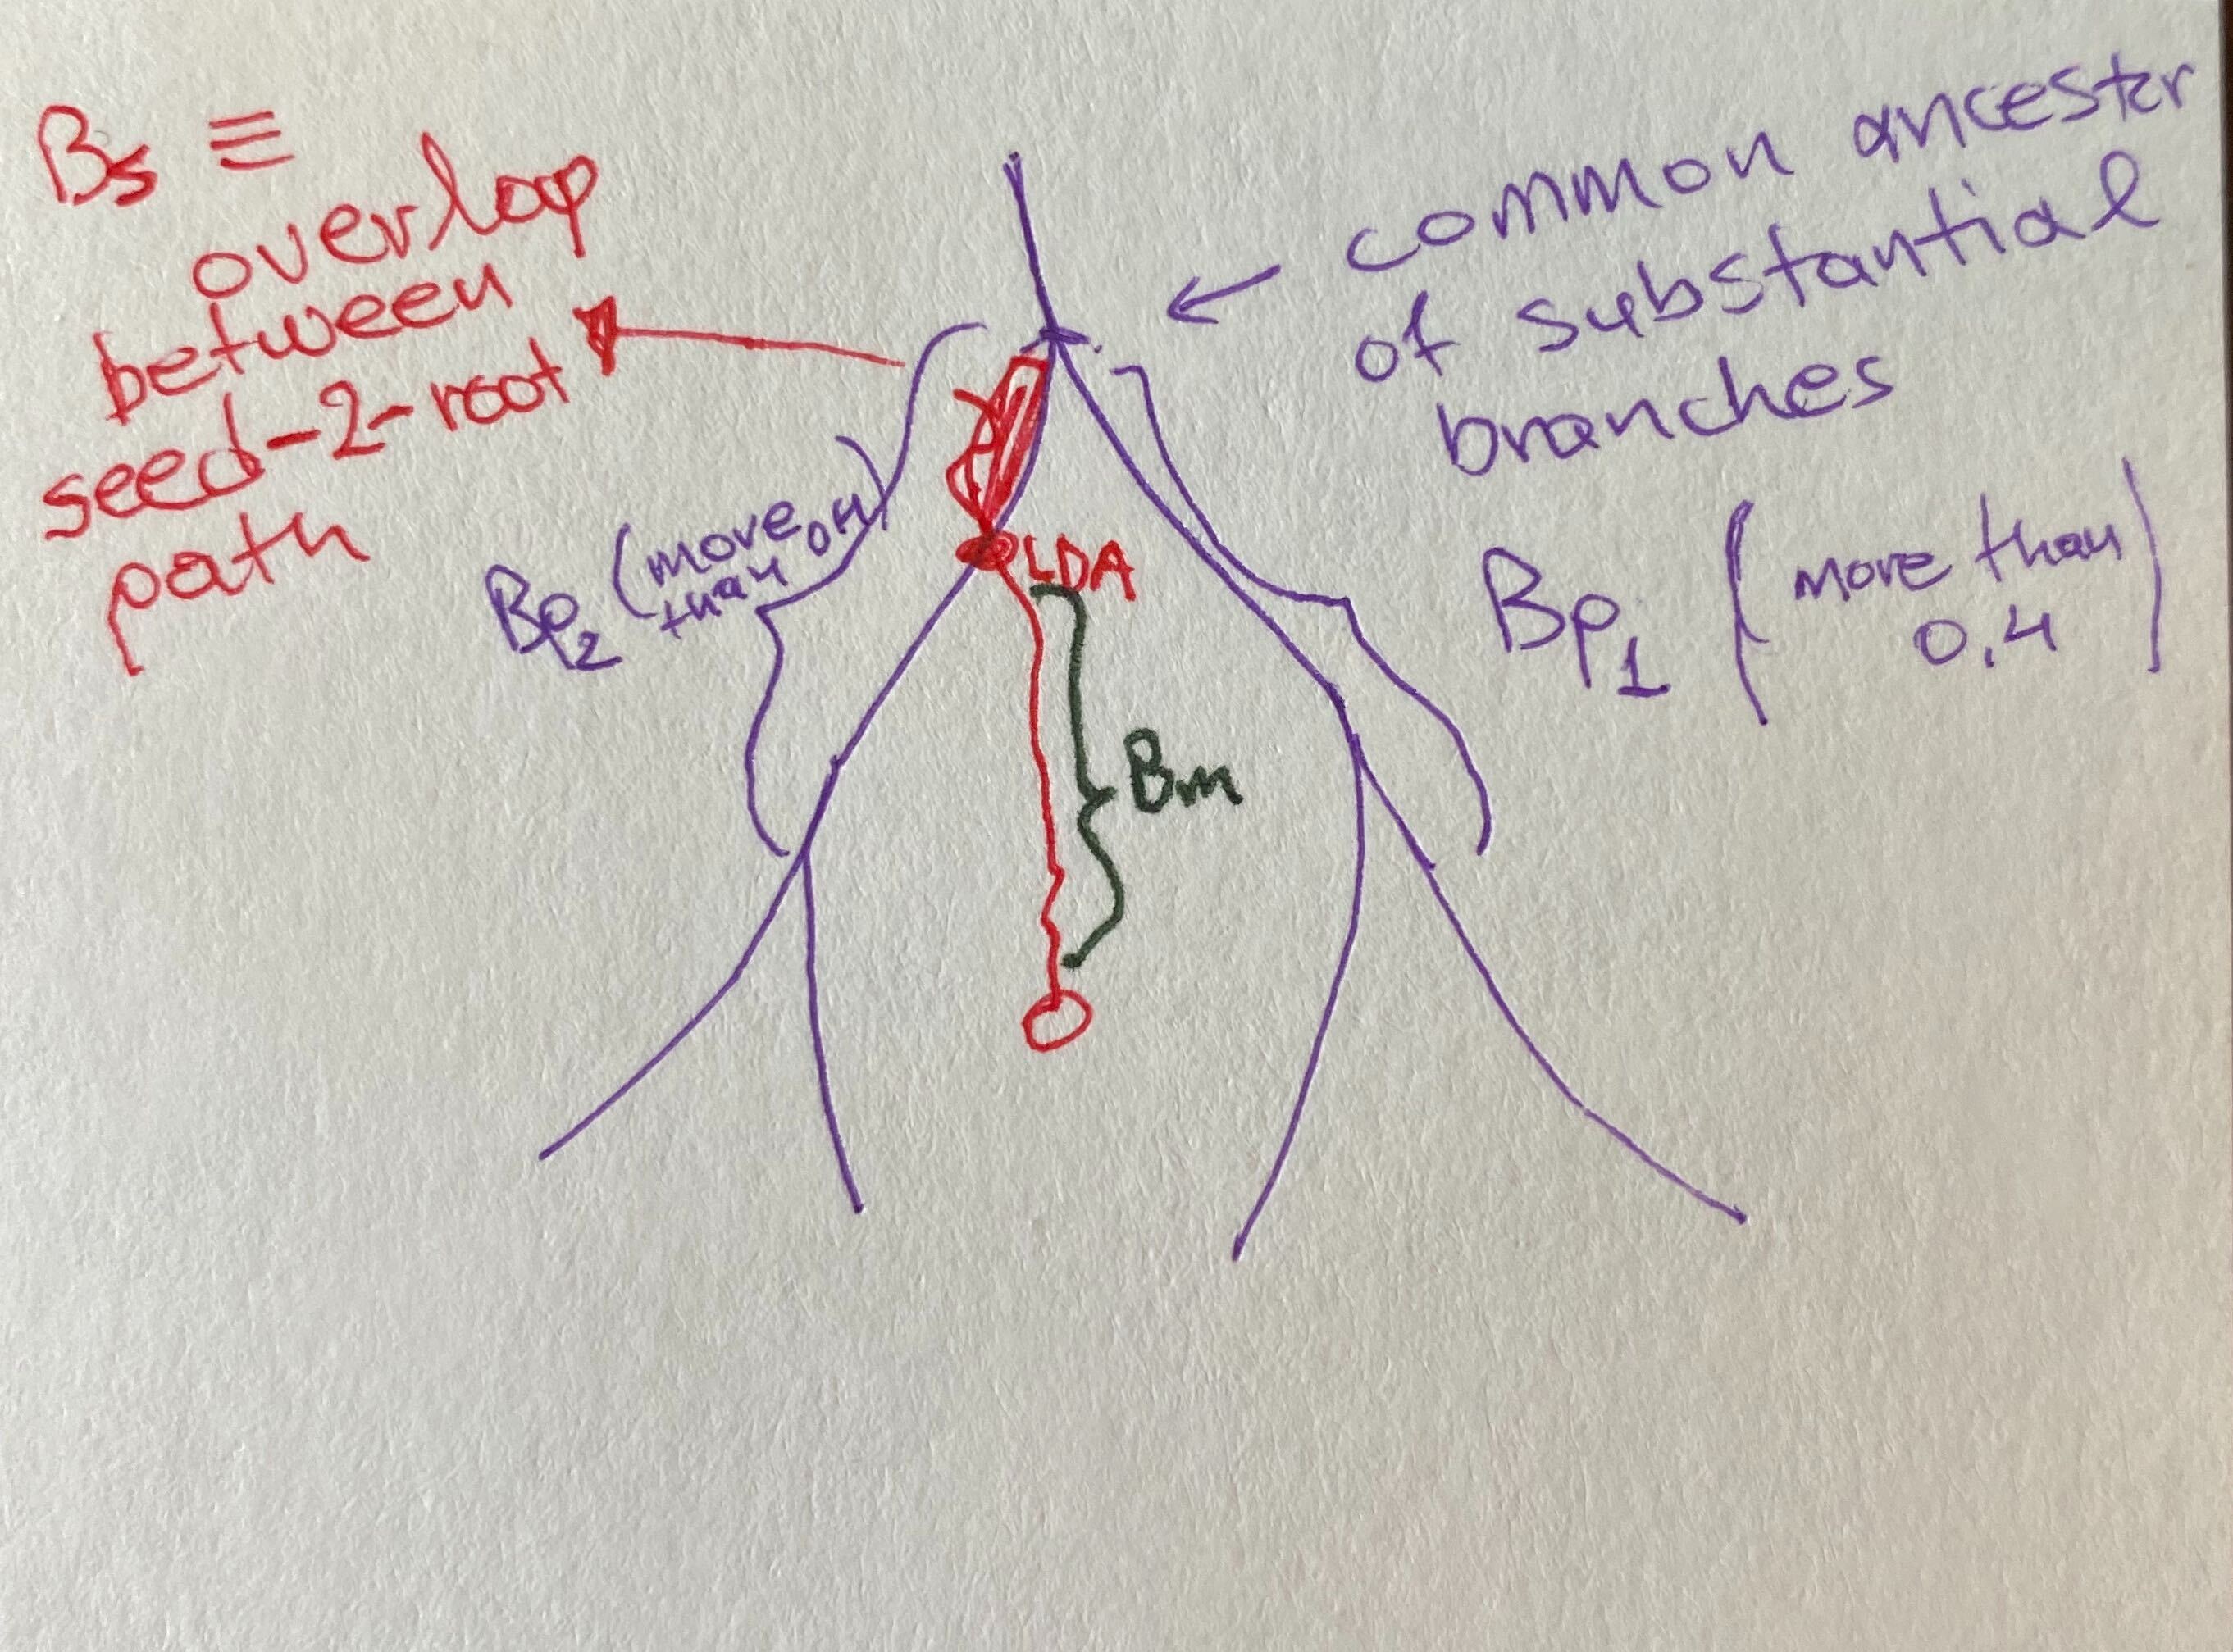 Bs ≡
overlap
between
seed-2-root
path
common ancestor
of substantial
branches
Bp2 (more
than 0.4)
LDA
Bp1 (more than
0.4)
Bm